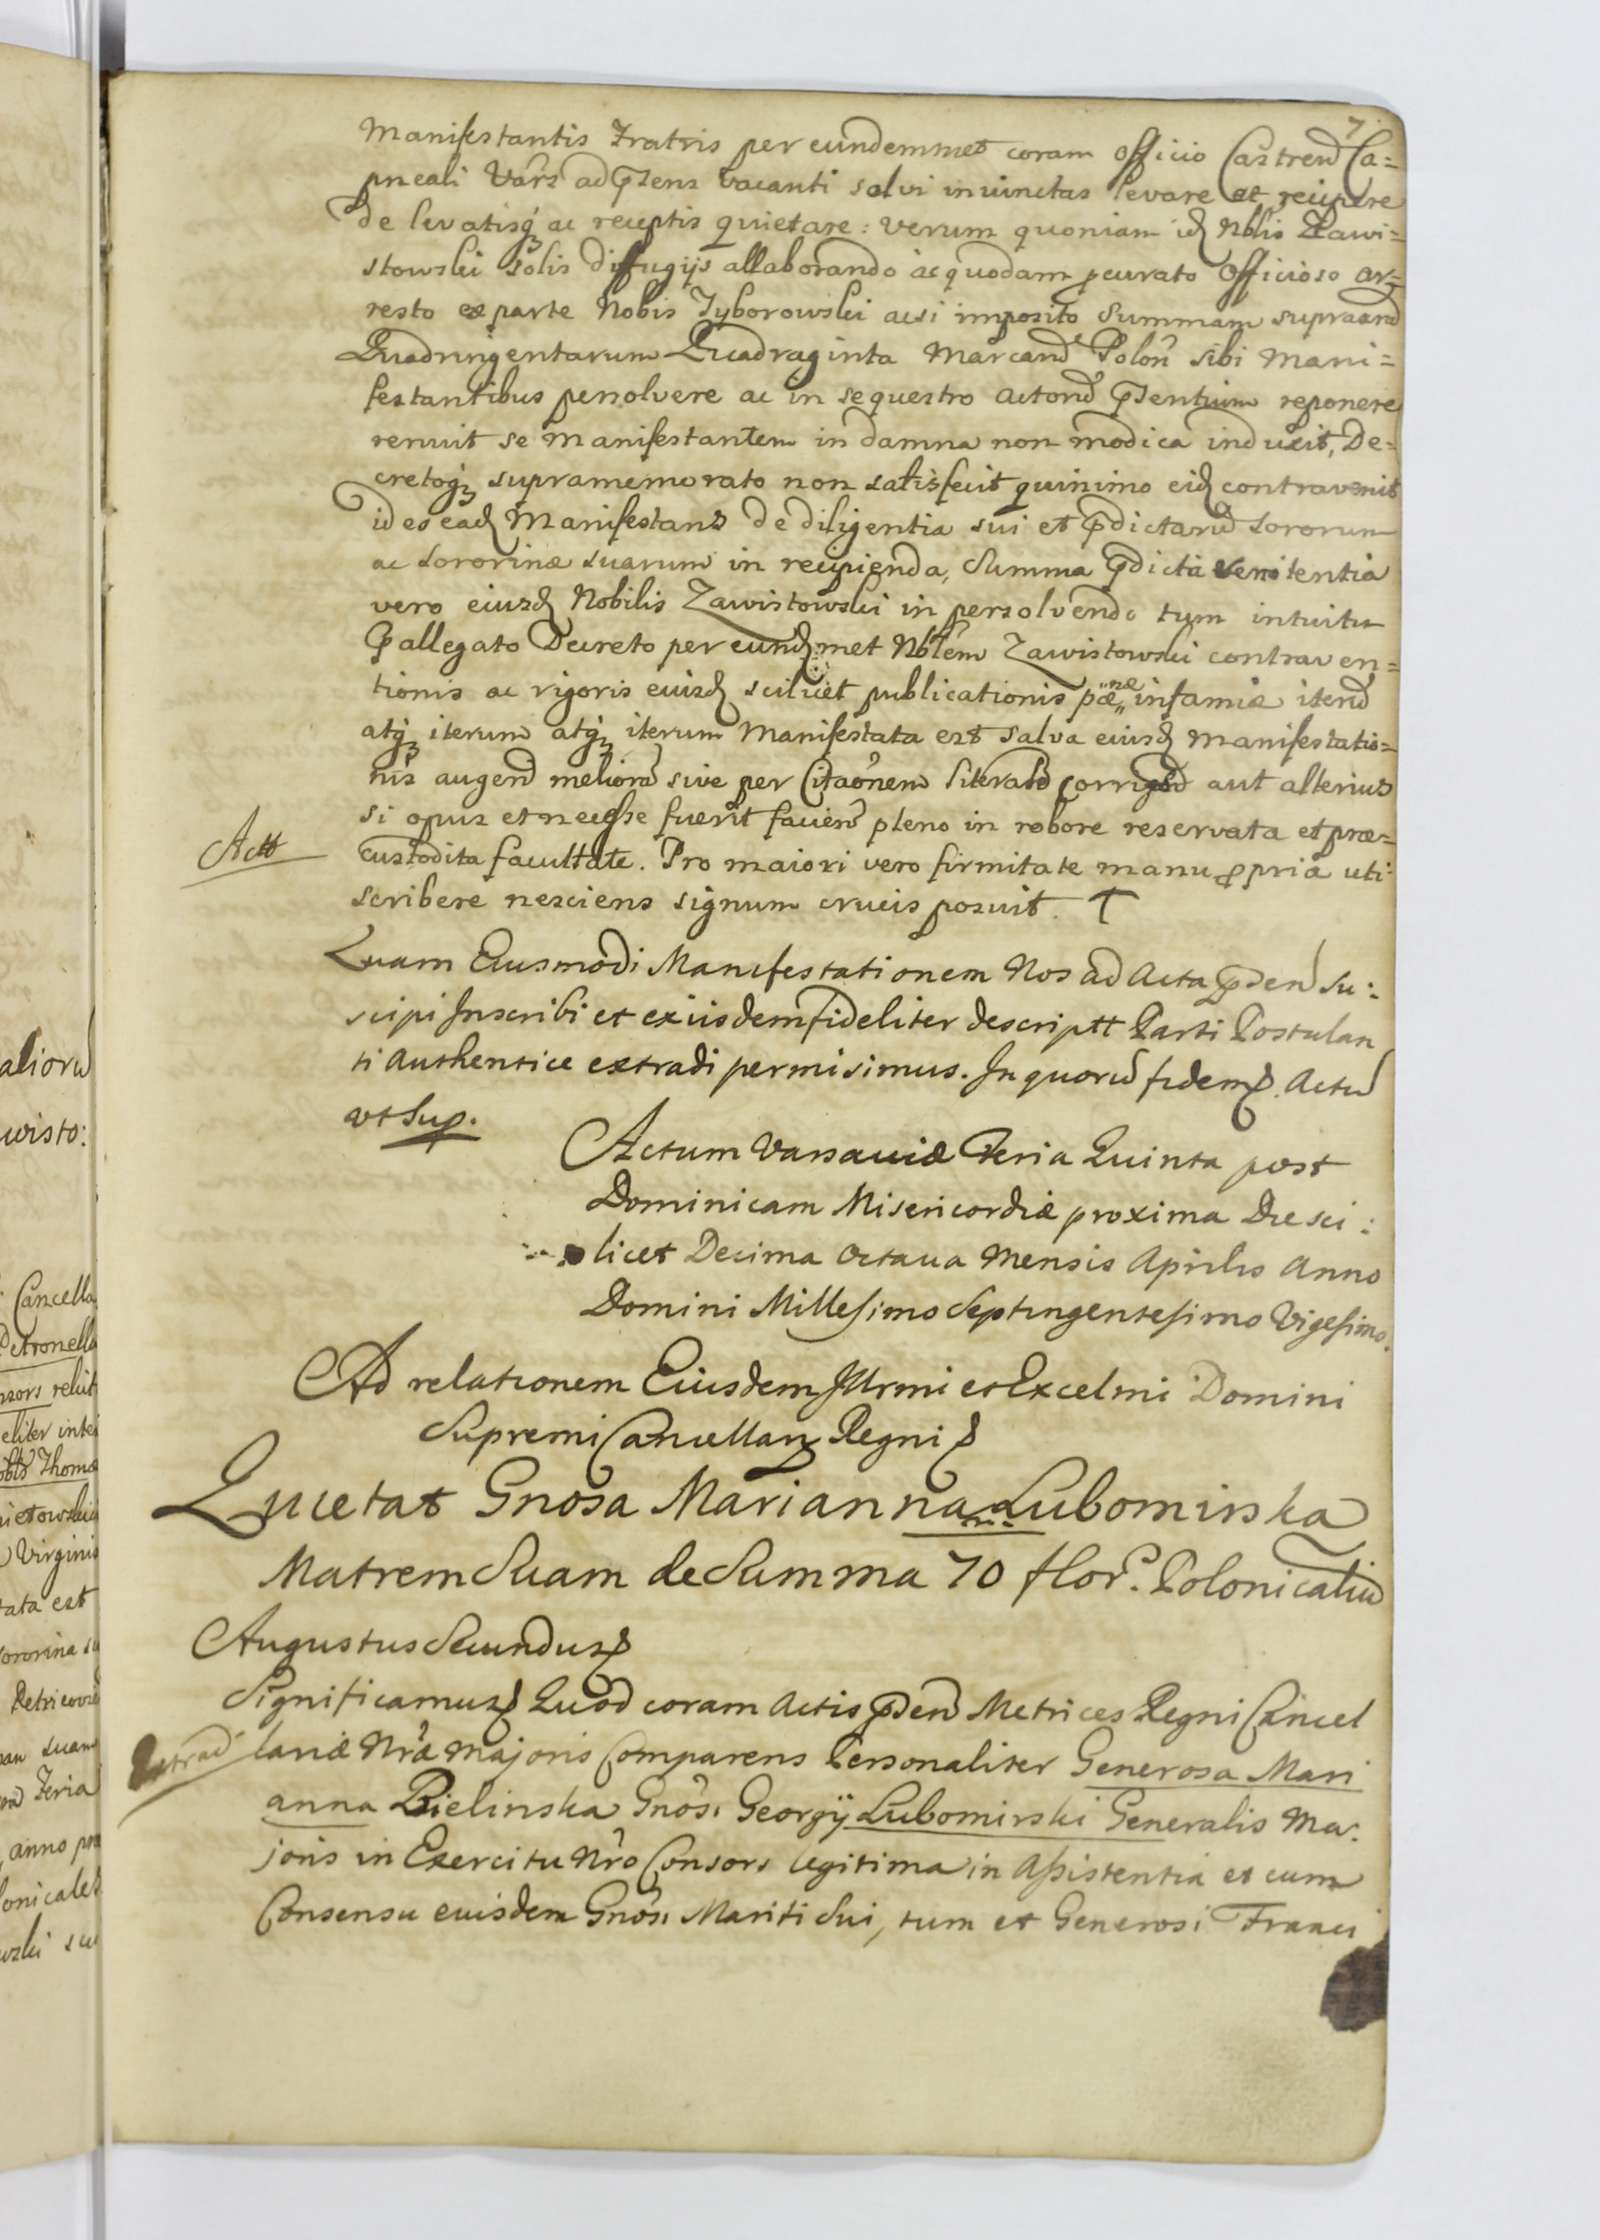 7.
Manifestantis Fratris per eundemmet coram Officio Castren Ca=
pneali Vars ad pñsens vacanti salvi inuinctas levare et recipere
de levatisq ac receptis quietare: verum quoniam id Nblis Zawi=
stowski solis diffugijs allaborando ac quodam pcurato Officioso ar=
resto ex parte Nobis Tyborowski acsi imposito Summam supra
Quadringentarum Quadraginta Marcaru Polon sibi Mani=
festantibus persolvere ac in sequestro Actoru pñsentium reponere
renuit se Manifestantem in damna non modica induxit, De=
cretoq supramemorato non satisfecit quinimo eid contravenit
ideo ead Manifestans de diligentia sui et pdictaru Sororum
ac Sororinæ suarum in recipienda, Summa pdicta renitentia
vero eiusd Nobilis Zawistowski in persolvendo tum intuitu
pallegato Decreto per eundmet Nblem Zawistowski contraven=
tionis ac rigoris eiusd scilicet publicationis pænæ infamiæ iteru
atq iterum atq iterum Manifestata est salva eiusd Manifestatio=
nis augen meliora sive per Citaonem literali corrigen aut alterius
si opus et necesse fuerit facien pleno in robore reservata et præ=
Actt
custodita facultate. Pro maiori vero firmitate manu ppria uti
scribere nesciens signum crucis posuit. †
Quam Eiusmodi Manifestationem Nos ad Acta pñsen su:
scipi Inscribi et exiisdem fideliter descriptt Parti Postulan
ti Authentice extradi permisimus. In quoru fidem. Actu
ut Sup.
Actum Varsaviæ Feria Quinta post
Dominicam Misericordiæ proxima Die sci:
licet Decima Octava Mensis Aprilis Anno
Domini Millesimo Septingentesimo Vigesimo.
Ad relationem Eiusdem Illrmi et Excelmi Domini
Supremi Cancellarij Regni
Quietat Gnosa Marianna Lubomirska
Matrem Suam de Summa 70 flor. Polonicaliu
Augustus Secundus
Significamus Quod coram Actis pñsen Metrices Regni Cancel
Extrad
lariæ Nræ Majoris Comparens Personaliter Generosa Mari
anna Bielinska Gnosi Georgij Lubomirski Generalis Ma:
joris in Exercitu Nro Consors legitima in Assistentia et cum
Consensu eiusdem Gnosi Mariti Sui, tum et Generosi Franci
aliorũ
wisto:
Cancella
Petronella
nsors relict
eliter inte
Thomæ
Virginis
tata est
ororina su
Petricovi
suam
Feria
anno pr
onicales